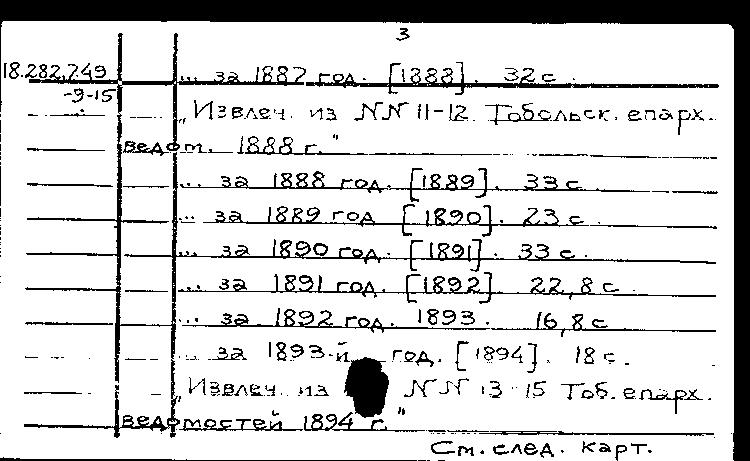 3
18.282.249 ... за 1887 год. [1888]. 32 с.
-9-15
„Извлеч. из NN 11-12 Тобольск. епарх.
ведом. 1888 г."
... за 1888 год. [1889]. 33 с.
... за 1889 год [1890]. 23 с.
... за 1890 год. [1891]. 33 с.
... за 1891 год. [1892]. 22,8 с.
... за 1892 год. 1893. 16,8 с
... за 1893-й год. [1894]. 18 с.
„Извлеч. из NN 13-15 Тоб. епарх.
ведомостей 1894 г."
См. след. карт.